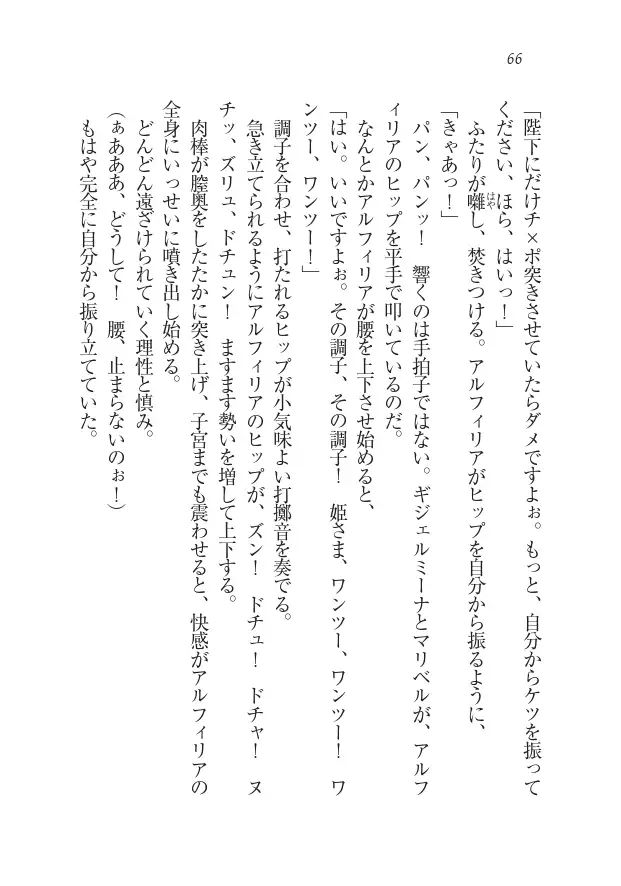 66
「陛下にだけチ×ポ突きさせていたらダメですよぉ。もっと、自分からケツを振って
ください、ほら、はいっ！」
ふたりが囃し、焚きつける。アルフィリアがヒップを自分から振るように、
はや
「きゃあっ！」
パン、パンッ！　響くのは手拍子ではない。ギジェルミーナとマリベルが、アルフ
ィリアのヒップを平手で叩いているのだ。
なんとかアルフィリアが腰を上下させ始めると、
「はい。いいですよぉ。その調子、その調子！　姫さま、ワンツー、ワンツー！　ワ
ンツー、ワンツー！」
調子を合わせ、打たれるヒップが小気味よい打擲音を奏でる。
急き立てられるようにアルフィリアのヒップが、ズン！　ドチュ！　ドチャ！　ヌ
チッ、ズリュ、ドチュン！　ますます勢いを増して上下する。
肉棒が膣奥をしたたかに突き上げ、子宮までも震わせると、快感がアルフィリアの
全身にいっせいに噴き出し始める。
どんどん遠ざけられていく理性と慎み。
（ぁあああ、どうして！　腰、止まらないのぉ！）
もはや完全に自分から振り立てていた。